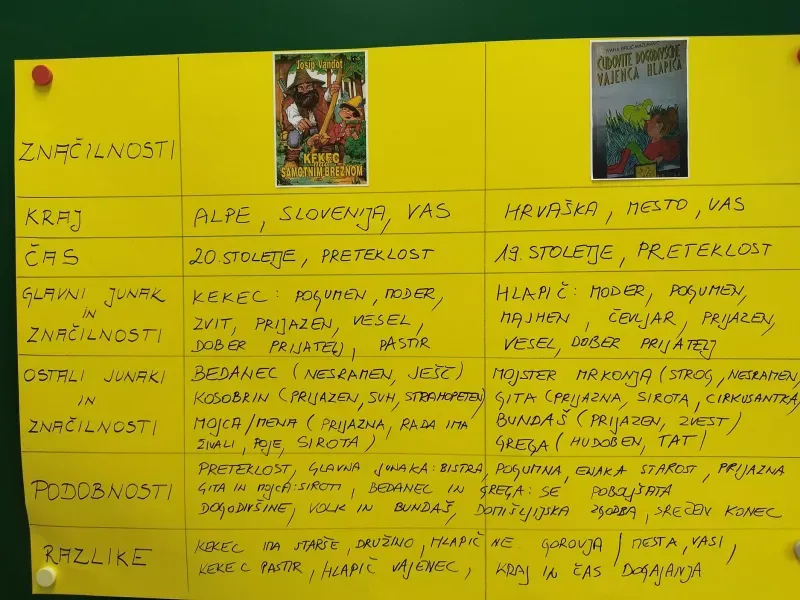 Josip Vandot
KEKEC
SAMOTNIM BREZNOM
IVANA BRLIĆ-MAŽURANIĆ
ČUDOVITE DOGODIVŠČINE
VAJENCA HLAPIČA
ZNAČILNOSTI
KRAJ
ALPE, SLOVENIJA, VAS
HRVAŠKA, MESTO, VAS
ČAS
20. STOLETJE, PRETEKLOST
19. STOLETJE, PRETEKLOST
GLAVNI JUNAK
IN
ZNAČILNOSTI
KEKEC: POGUMEN, MODER,
ZVIT, PRIJAZEN, VESEL,
DOBER PRIJATELJ, PASTIR
HLAPIČ: MODER, POGUMEN,
MAJHEN, ČEVLJAR, PRIJAZEN,
VESEL, DOBER PRIJATELJ
OSTALI JUNAKI
IN
ZNAČILNOSTI
BEDANEC (NESRAMEN, JEŠČ)
KOSOBRIN (PRIJAZEN, SUH, STRAHOPETEN)
MOJCA/MENA (PRIJAZNA, RADA IMA
ŽIVALI, POJE, SIROTA)
MOJSTER MRKONJA (STROG, NESRAMEN,
GITA (PRIJAZNA, SIROTA, CIRKUSANTKA)
BUNDAŠ (PRIJAZEN, ZVEST)
GREGA (HUDOBEN, TAT)
PODOBNOSTI
PRETEKLOST, GLAVNA JUNAKA: BISTRA, POGUMNA, ENAKA STAROST, PRIJAZNA
GITA IN MOJCA: SIROTI, BEDANEC IN GREGA: SE POBOLJŠATA
DOGODIVŠINE, VOLK IN BUNDAŠ, DOMIŠLJIJSKA ZGODBA, SREČEN KONEC
RAZLIKE
KEKEC IMA STARŠE, DRUŽINO, HLAPIČ NE. GOROVJA / MESTA, VASI,
KEKEC PASTIR, HLAPIČ VAJENEC, KRAJ IN ČAS DOGAJANJA